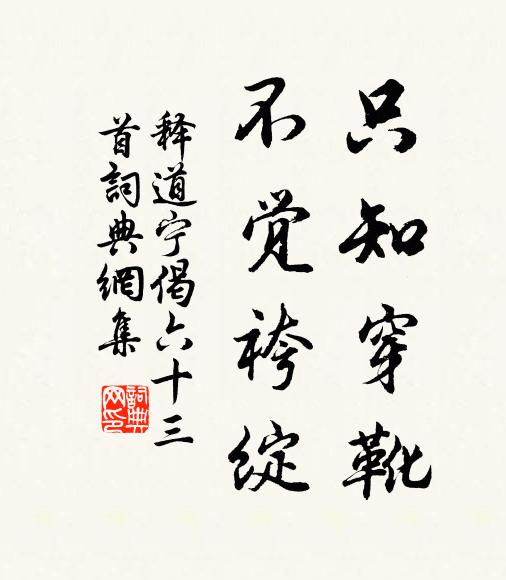 只知穿靴
不觉袴綻
释道宁偈六十三
首詞典網集
詞典
网印